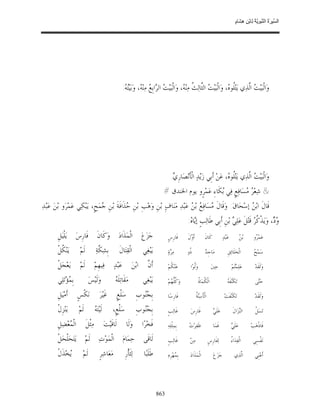 السّيرَة النَبَويّة لابن هشام
وَالْبَيْتُ الَّذِي يَتْلُوهُ، وَالْبَيْتُ الثَّالِثُ مِنْهُ، وَالْبَيْتُ الرَّابِعُ مِنْهُ، وَبَيْتُهُ
وَالْبَيْتُ الَّذِي يَتْلُوهُ، عَنْ أَبِي زَيْدٍ الْأَنْصَارِيِّ
شِعْرُ مُسَافِعٍ فِي بُكَاءِ عَمْرٍو يوم الخندق
قَالَ ابْنُ إسْحَاقَ وَقَالَ مُسَافِعُ بْنُ عَبْدِ مَنَافِ بْنِ وَهْبِ بْنِ حُذَافَةَ بْنِ جُمَحٍ، يَبْكِي عَمْرَو بْنَ عَبْدِ
وُدٍّ، وَيَذْكُرُ قَتْلَ عَلِيِّ بْنِ أَبِي طَالِبٍ إيَّاهُ
عَمْرُو بْنُ عَبْدٍ كَانَ أَوَّلَ فَارِسٍ جَزَعَ الْمَذَادَ وَكَانَ فَارِسَ يَلْيَلِ
سَمْحُ الْخَلَائِقِ مَاجِدٌ ذُو مِرَّةٍ يَبْغِي الْقِتَالَ بِشِكَّةٍ لَمْ يَنْكُلْ
وَلَقَدْ عَلِمْتُمْ حِينَ وَلَّوْا عَنْكُمْ أَنَّ ابْنَ عَبْدٍ فِيهِمْ لَمْ يَعْجَلْ
حَتَّى تَكَنَّفَهُ الْكُمَاةُ وَكُلُّهُمْ يَبْغِي مَقَاتِلَهُ وَلَيْسَ بِمُؤْتَلِي
وَلَقَدْ تَكَنَّفَتْ الْأَسِنَّةُ فَارِسًا بِجُنُوبِ سَلْعٍ غَيْرَ نَكْسٍ أَمْيَلِ
تَسَلُ النِّزَالَ عَلِيُّ فَارِسَ غَالِبٍ بِجُنُوبِ سَلْعٍ، لَيْتَهُ لَمْ يَنْزِلْ
فَاذْهَبْ عَلِيُّ فَمَا ظَفِرْتَ بِمِثْلِهِ فَخْرًا وَلَا لَاقَيْتَ مِثْلَ الْمُعْضِلِ
نَفْسِي الْفِدَاءُ لِفَارِسٍ مِنْ غَالِبٍ لَاقَى حِمَامَ الْمَوْتِ لَمْ يَتَحَلْحَلْ
أَعْنِي الَّذِي جَزَعَ الْمَذَادَ بِمُهْرِهِ طَلَبًا لِثَأْرِ مَعَاشِرٍ لَمْ يُخْذَلْ
863